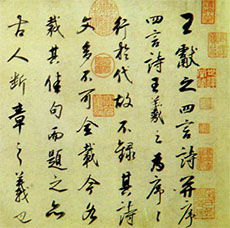 王獻之四言詩并序
四言詩王羲之為序〻
行於代故不錄其詩
文多不可全載今各
裁其佳句而題之亦
古人斷章之義也